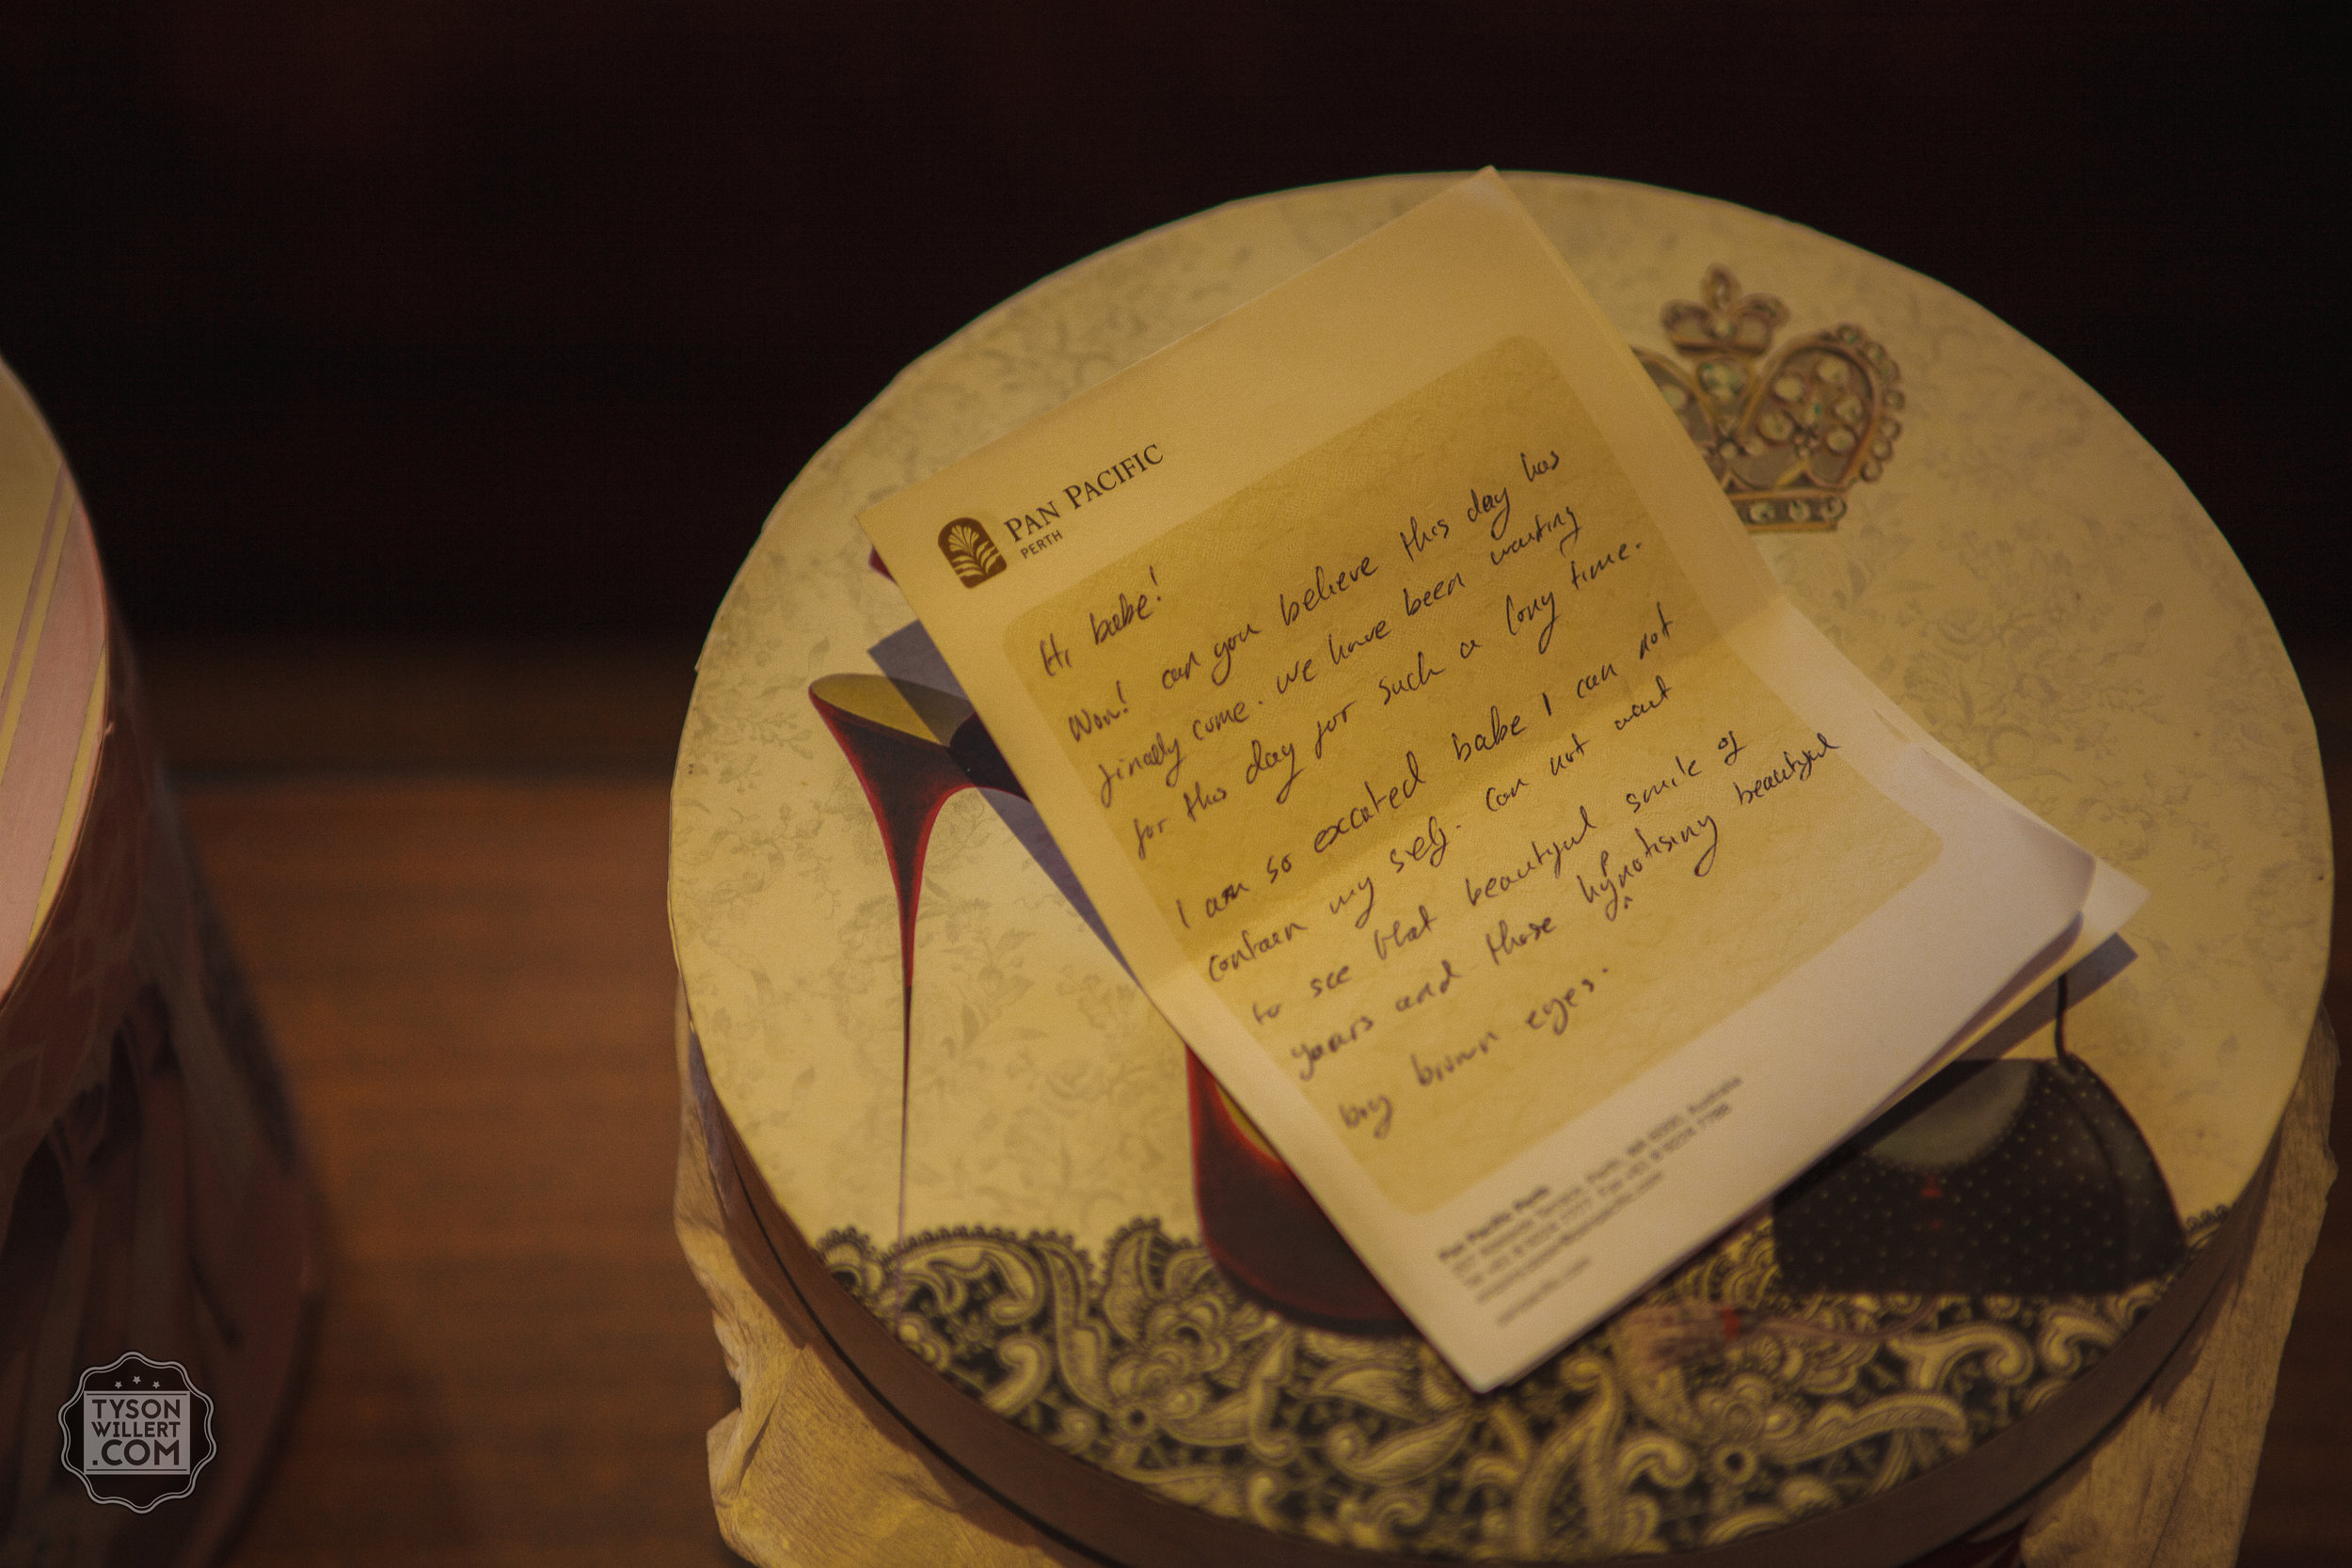 PAN PACIFIC
PERTH
Hi babe!
Wow! can you believe this day has
finally come. we have been waiting
for this day for such a long time.
I am so excated babe I can not
contain my self. can not wait
to see that beautyful smile of
yours and those hypnotising beautyful
big brown eyes.
Pan Pacific Perth
TYSON
WILLERT
.COM